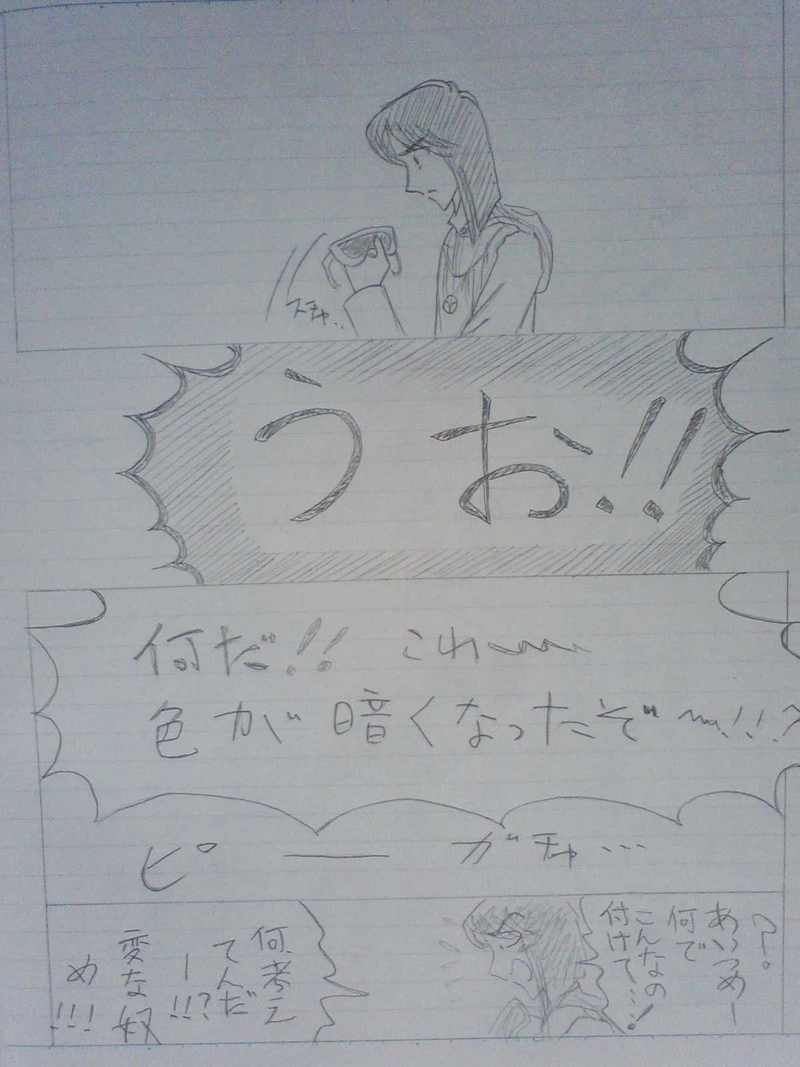 スチャ..
うお!!
何だ!! これ〜〜
色が暗くなったぞ〜!!?
ピ――ガチャ…
?!。
あいつめー
何で
こんなの
付けて…!
何考え
てんだ
ー!!?
変な奴
め!!!